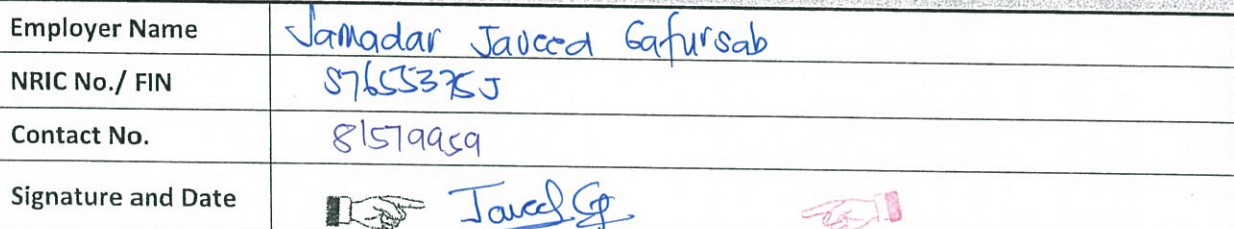 Employer Name Jamadar Javeed Gafursab
NRIC No./ FIN S7655375J
Contact No. 81579959
Signature and Date Javeed